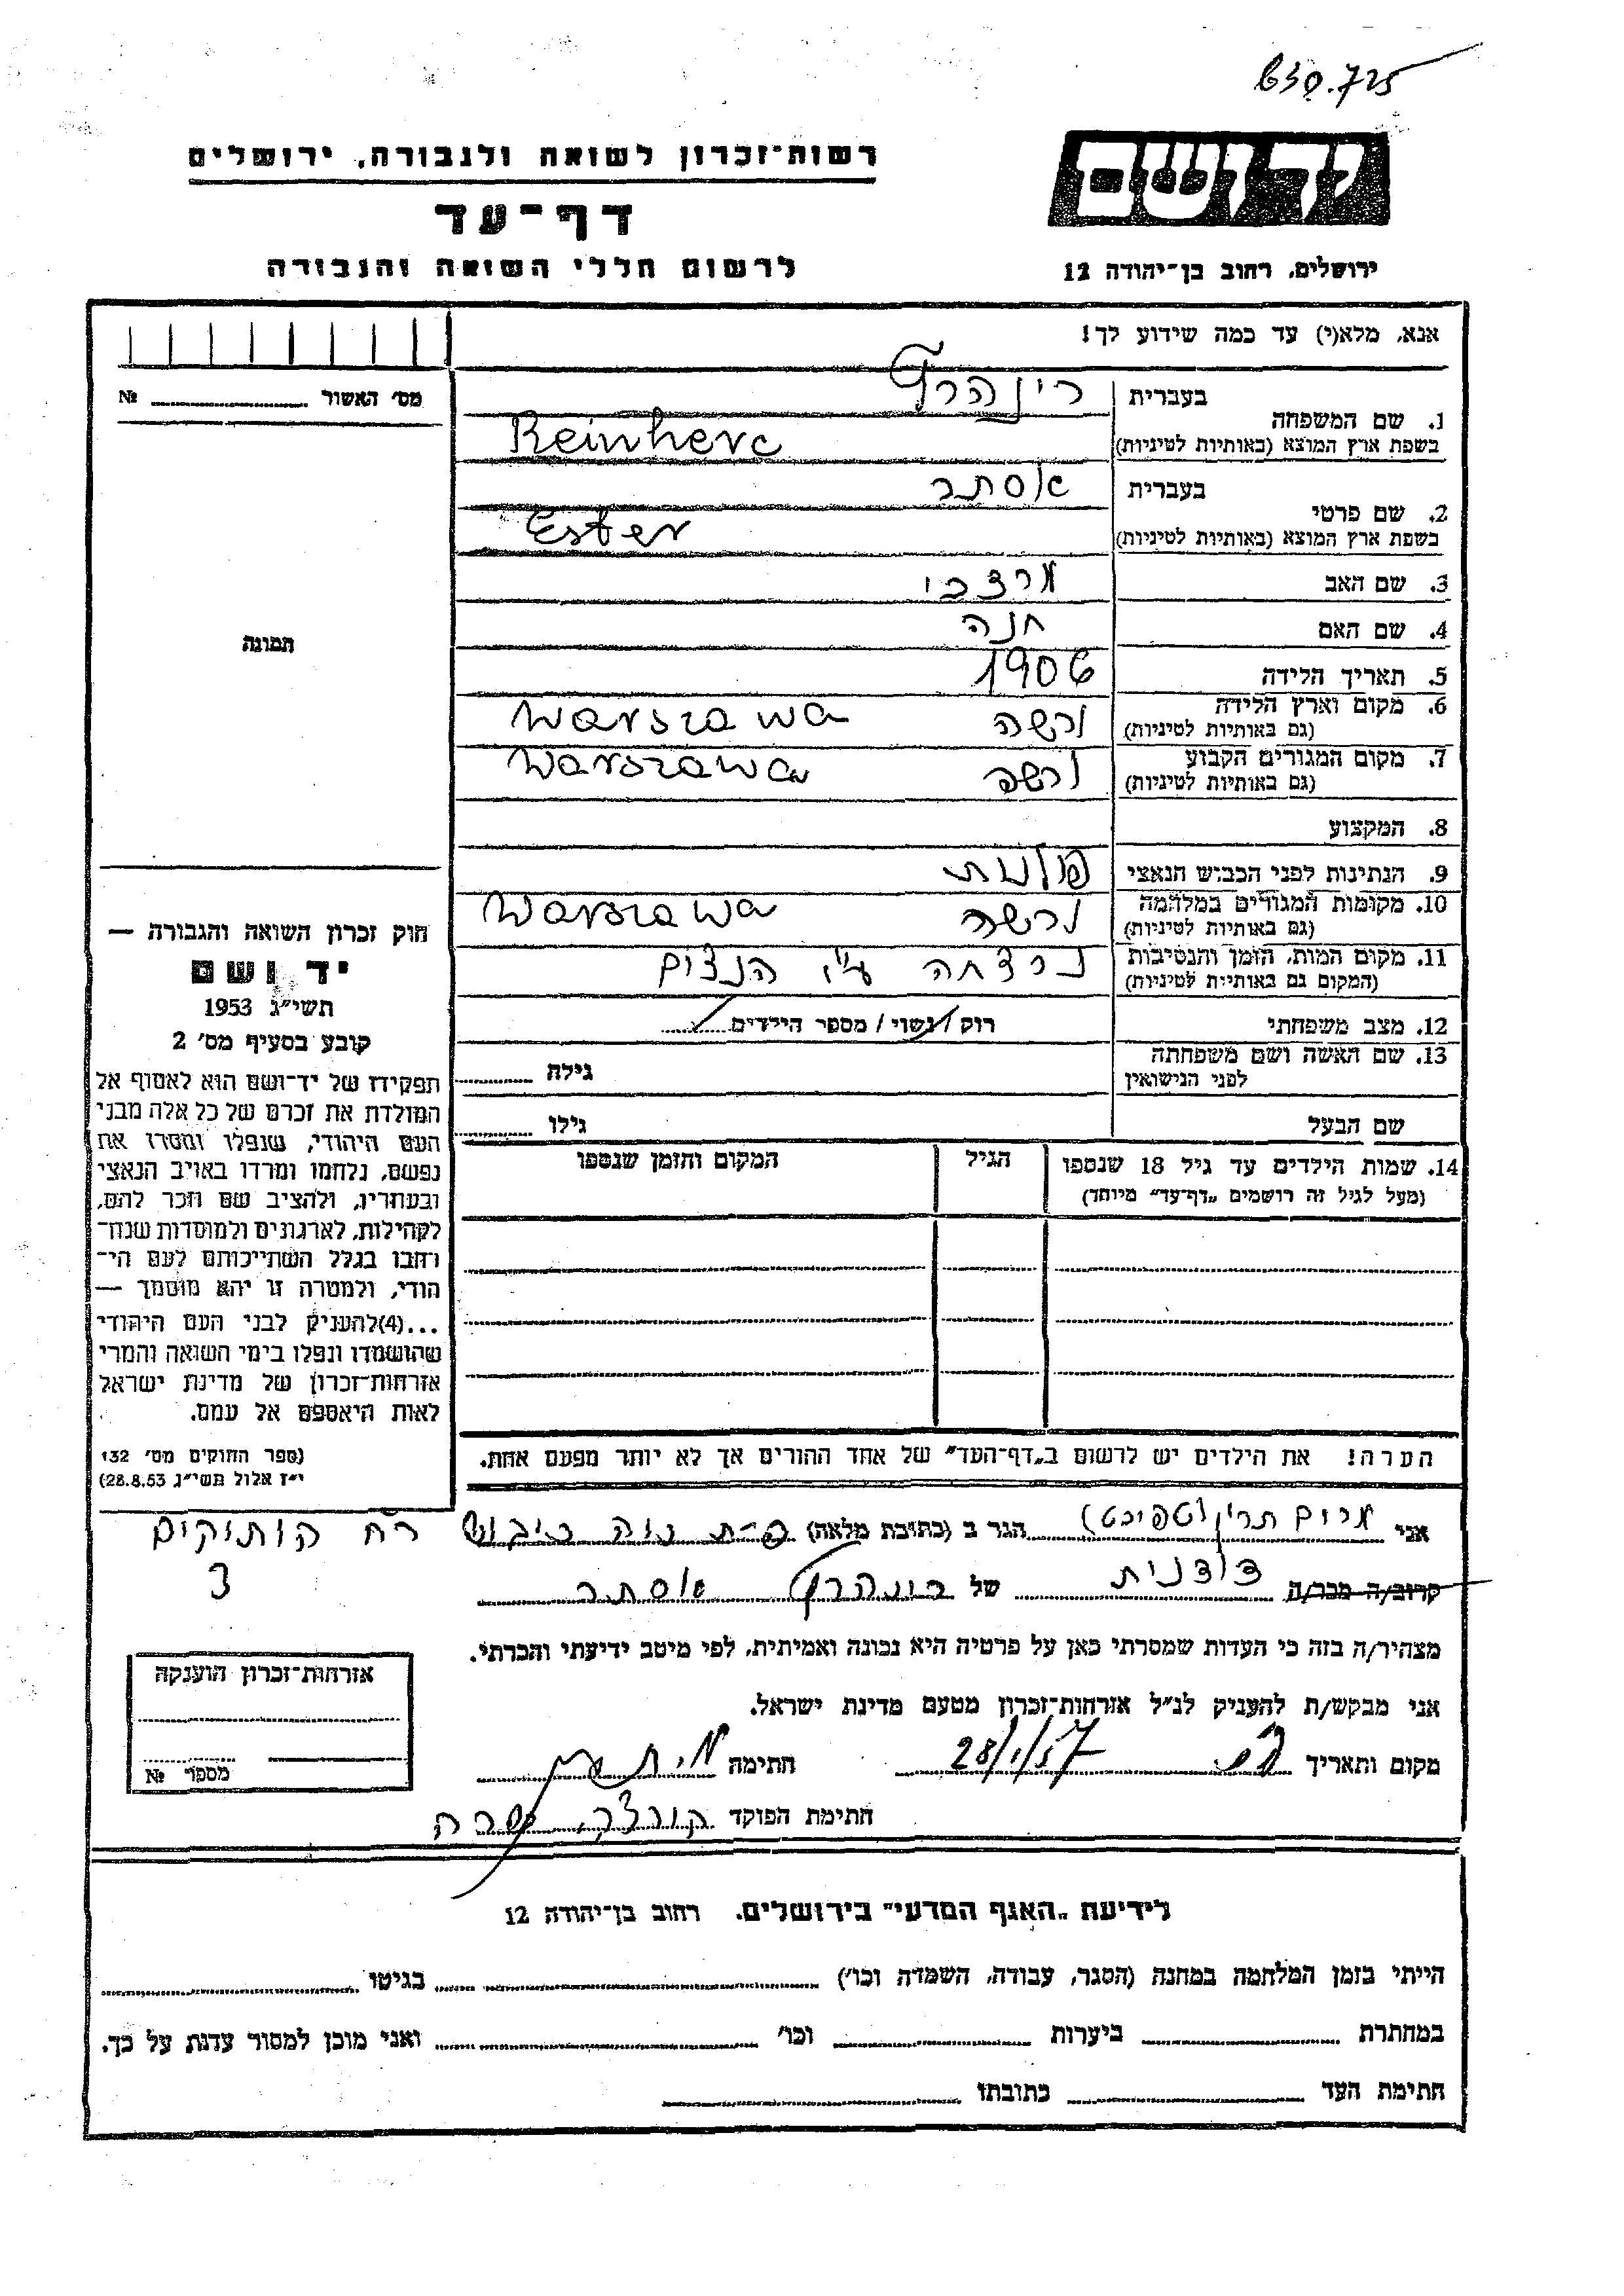 630.725
רשות-זכרון לשואה ולגבורה, ירושלים
יד ושם
דף-עד
לרשום חללי השואה והגבורה
ירושלים, רחוב בן-יהודה 12
אנא, מלא(י) עד כמה שידוע לך!
מס' האשור № 
1. שם המשפחה
בעברית ריינהרץ
בשפת ארץ המוצא (באותיות לטיניות) Reinherc
2. שם פרטי
בעברית אסתר
בשפת ארץ המוצא (באותיות לטיניות) Ester
3. שם האב מרדכי
4. שם האם חנה
5. תאריך הלידה 1906
6. מקום וארץ הלידה
(גם באותיות לטיניות) ורשה Warszawa
7. מקום המגורים הקבוע
(גם באותיות לטיניות) ורשה Warszawa
8. המקצוע
9. הנתינות לפני הכבוש הנאצי פולנית
10. מקומות המגורים במלחמה
(גם באותיות לטיניות) ורשה Warszawa
11. מקום המות, הזמן והנסיבות
(המקום גם באותיות לטיניות) נרצחה ע"י הנצים
12. מצב משפחתי רוק / נשוי / מספר הילדים
13. שם האשה ושם משפחתה
לפני הנישואין
גילה
שם הבעל גילו
14. שמות הילדים עד גיל 18 שנספו הגיל המקום והזמן שנספו
(מעל לגיל זה רושמים "דף-עד" מיוחד)
הערה! את הילדים יש לרשום ב"דף-העד" של אחד ההורים אך לא יותר מפעם אחת.
תמונה
חוק זכרון השואה והגבורה —
יד ושם
תשי"ג 1953
קובע בסעיף מס' 2
תפקידו של יד-ושם הוא לאסוף אל
המולדת את זכרם של כל אלה מבני
העם היהודי, שנפלו ומסרו את
נפשם, נלחמו ומרדו באויב הנאצי
ובעוזריו, ולהציב שם וזכר להם,
לקהילות, לארגונים ולמוסדות שנח-
רבו בגלל השתייכותם לעם הי-
הודי, ולמטרה זו יהא מוסמך —
...(4)להעניק לבני העם היהודי
שהושמדו ונפלו בימי השואה והמרי
אזרחות-זכרון של מדינת ישראל
לאות היאספם אל עמם.
(ספר החוקים מס' 132
י"ז אלול תשי"ג 28.8.53)
אני מרים הגר ב (כתובת מלאה) רח הותיקים
3
קרוב/ה מכר/ה דודנית של רינהרץ אסתר
מצהיר/ה בזה כי העדות שמסרתי כאן על פרטיה היא נכונה ואמיתית, לפי מיטב ידיעתי והכרתי.
אני מבקש/ת להעניק לנ"ל אזרחות-זכרון מטעם מדינת ישראל.
מקום ותאריך 28/1/57 חתימה
חתימת הפוקד שרה
אזרחות-זכרון הוענקה
מספר №
לידיעת "האגף המדעי" בירושלים, רחוב בן-יהודה 12
הייתי בזמן המלחמה במחנה (הסגר, עבודה, השמדה וכו') בגיטו
במחתרת ביערות וכו' ואני מוכן למסור עדות על כך.
חתימת העד כתובתו